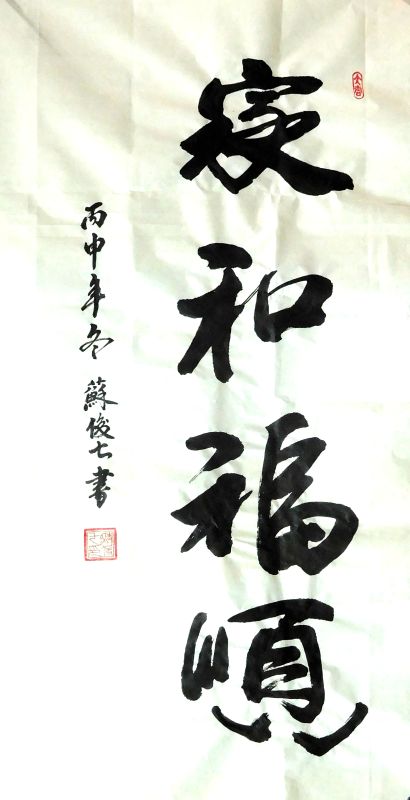 家和福順
丙申年冬 蘇俊士書